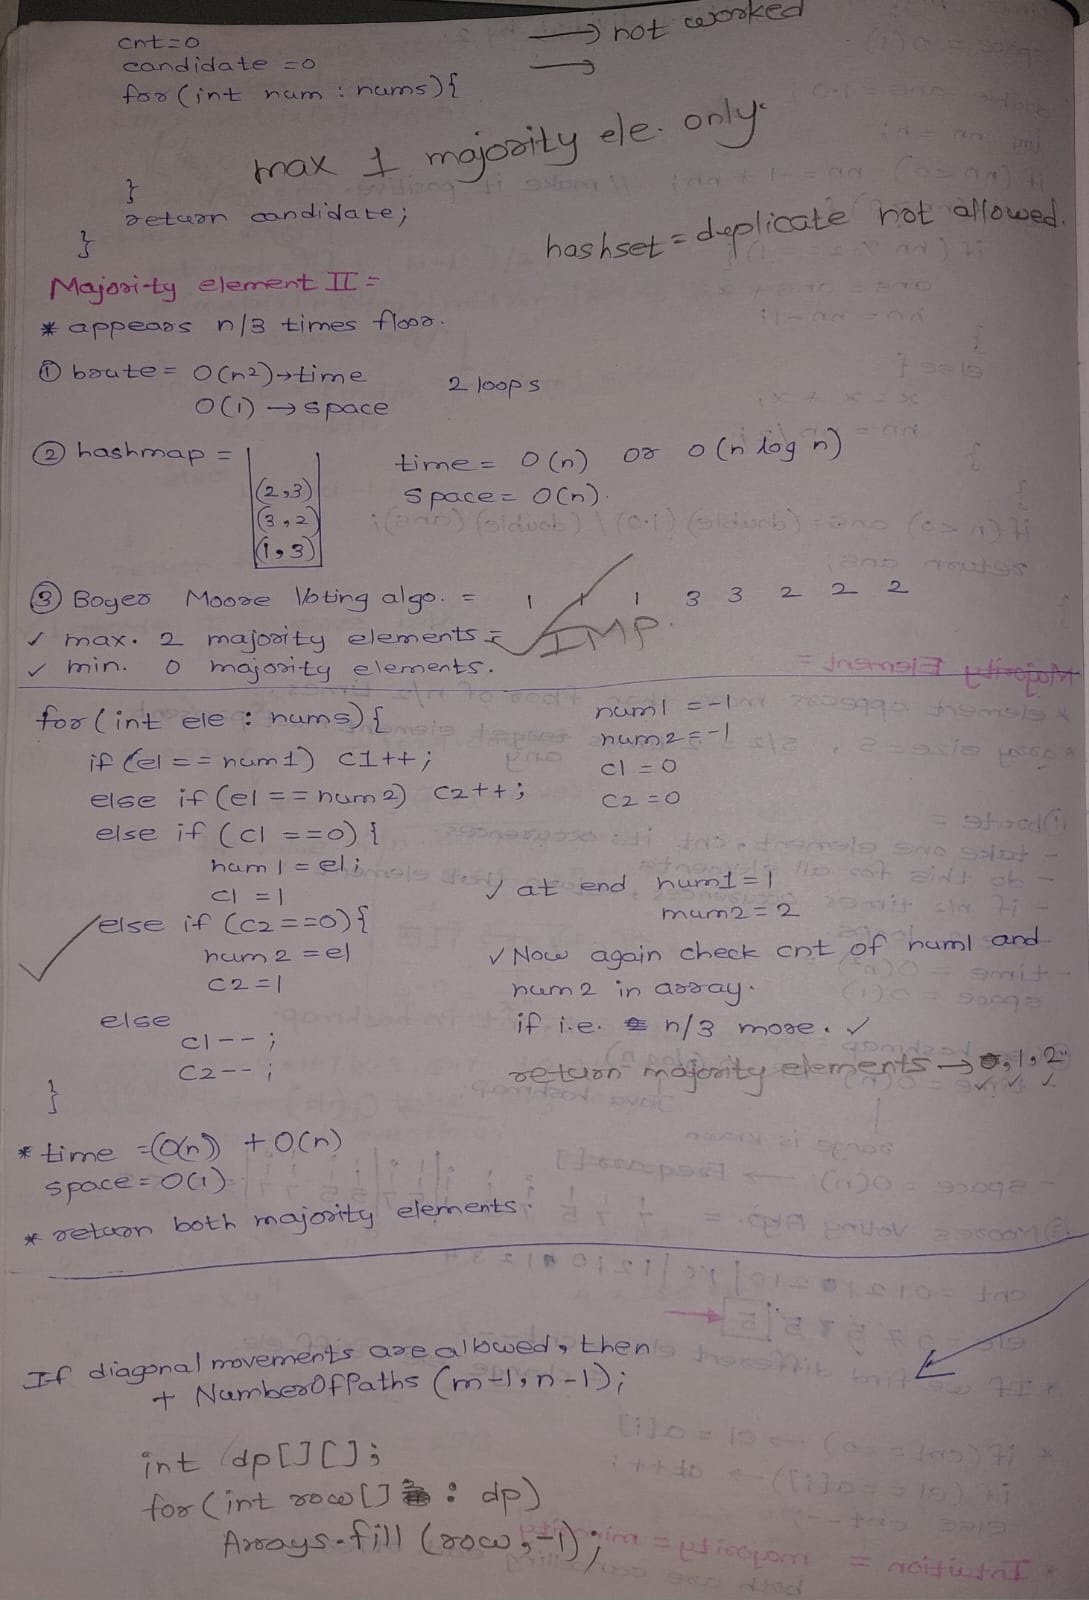 cnt=0
→ not worked
candidate =0
→
for(int num : nums){
max 1 majority ele. only.
}
return candidate;
}
hashset = duplicate not allowed.
Majority element II =
* appears n/3 times floor.
① brute = O(n²)→time
2 loops
O(1) → space
② hashmap =
(2,3)
(3,2)
(1,3)
time = O(n) or O(n log n)
space = O(n).
③ Boyer Moore Voting algo. = 1 1 1 3 3 2 2 2
✓ max. 2 majority elements =
IMP.
✓ min. 0 majority elements.
for(int ele : nums){
if (el == num1) c1++;
else if (el == num2) c2++;
else if (c1 ==0){
num1 = el;
c1 =1
else if (c2==0){
num2 =el
c2=1
else
c1--;
c2--;
}
num1 =-1
num2=-1
c1 =0
c2=0
✓ at end num1=1
num2=2
✓ Now again check cnt of num1 and
num2 in array.
if i.e. n/3 more. ✓
return majority elements → 0,1,2
* time =(O(n)) + O(n)
space = O(1)
* return both majority elements.
If diagonal movements are allowed, then
+ NumberOfPaths (m-1,n-1);
int dp[][];
for(int row[] : dp)
Arrays.fill (row,-1);